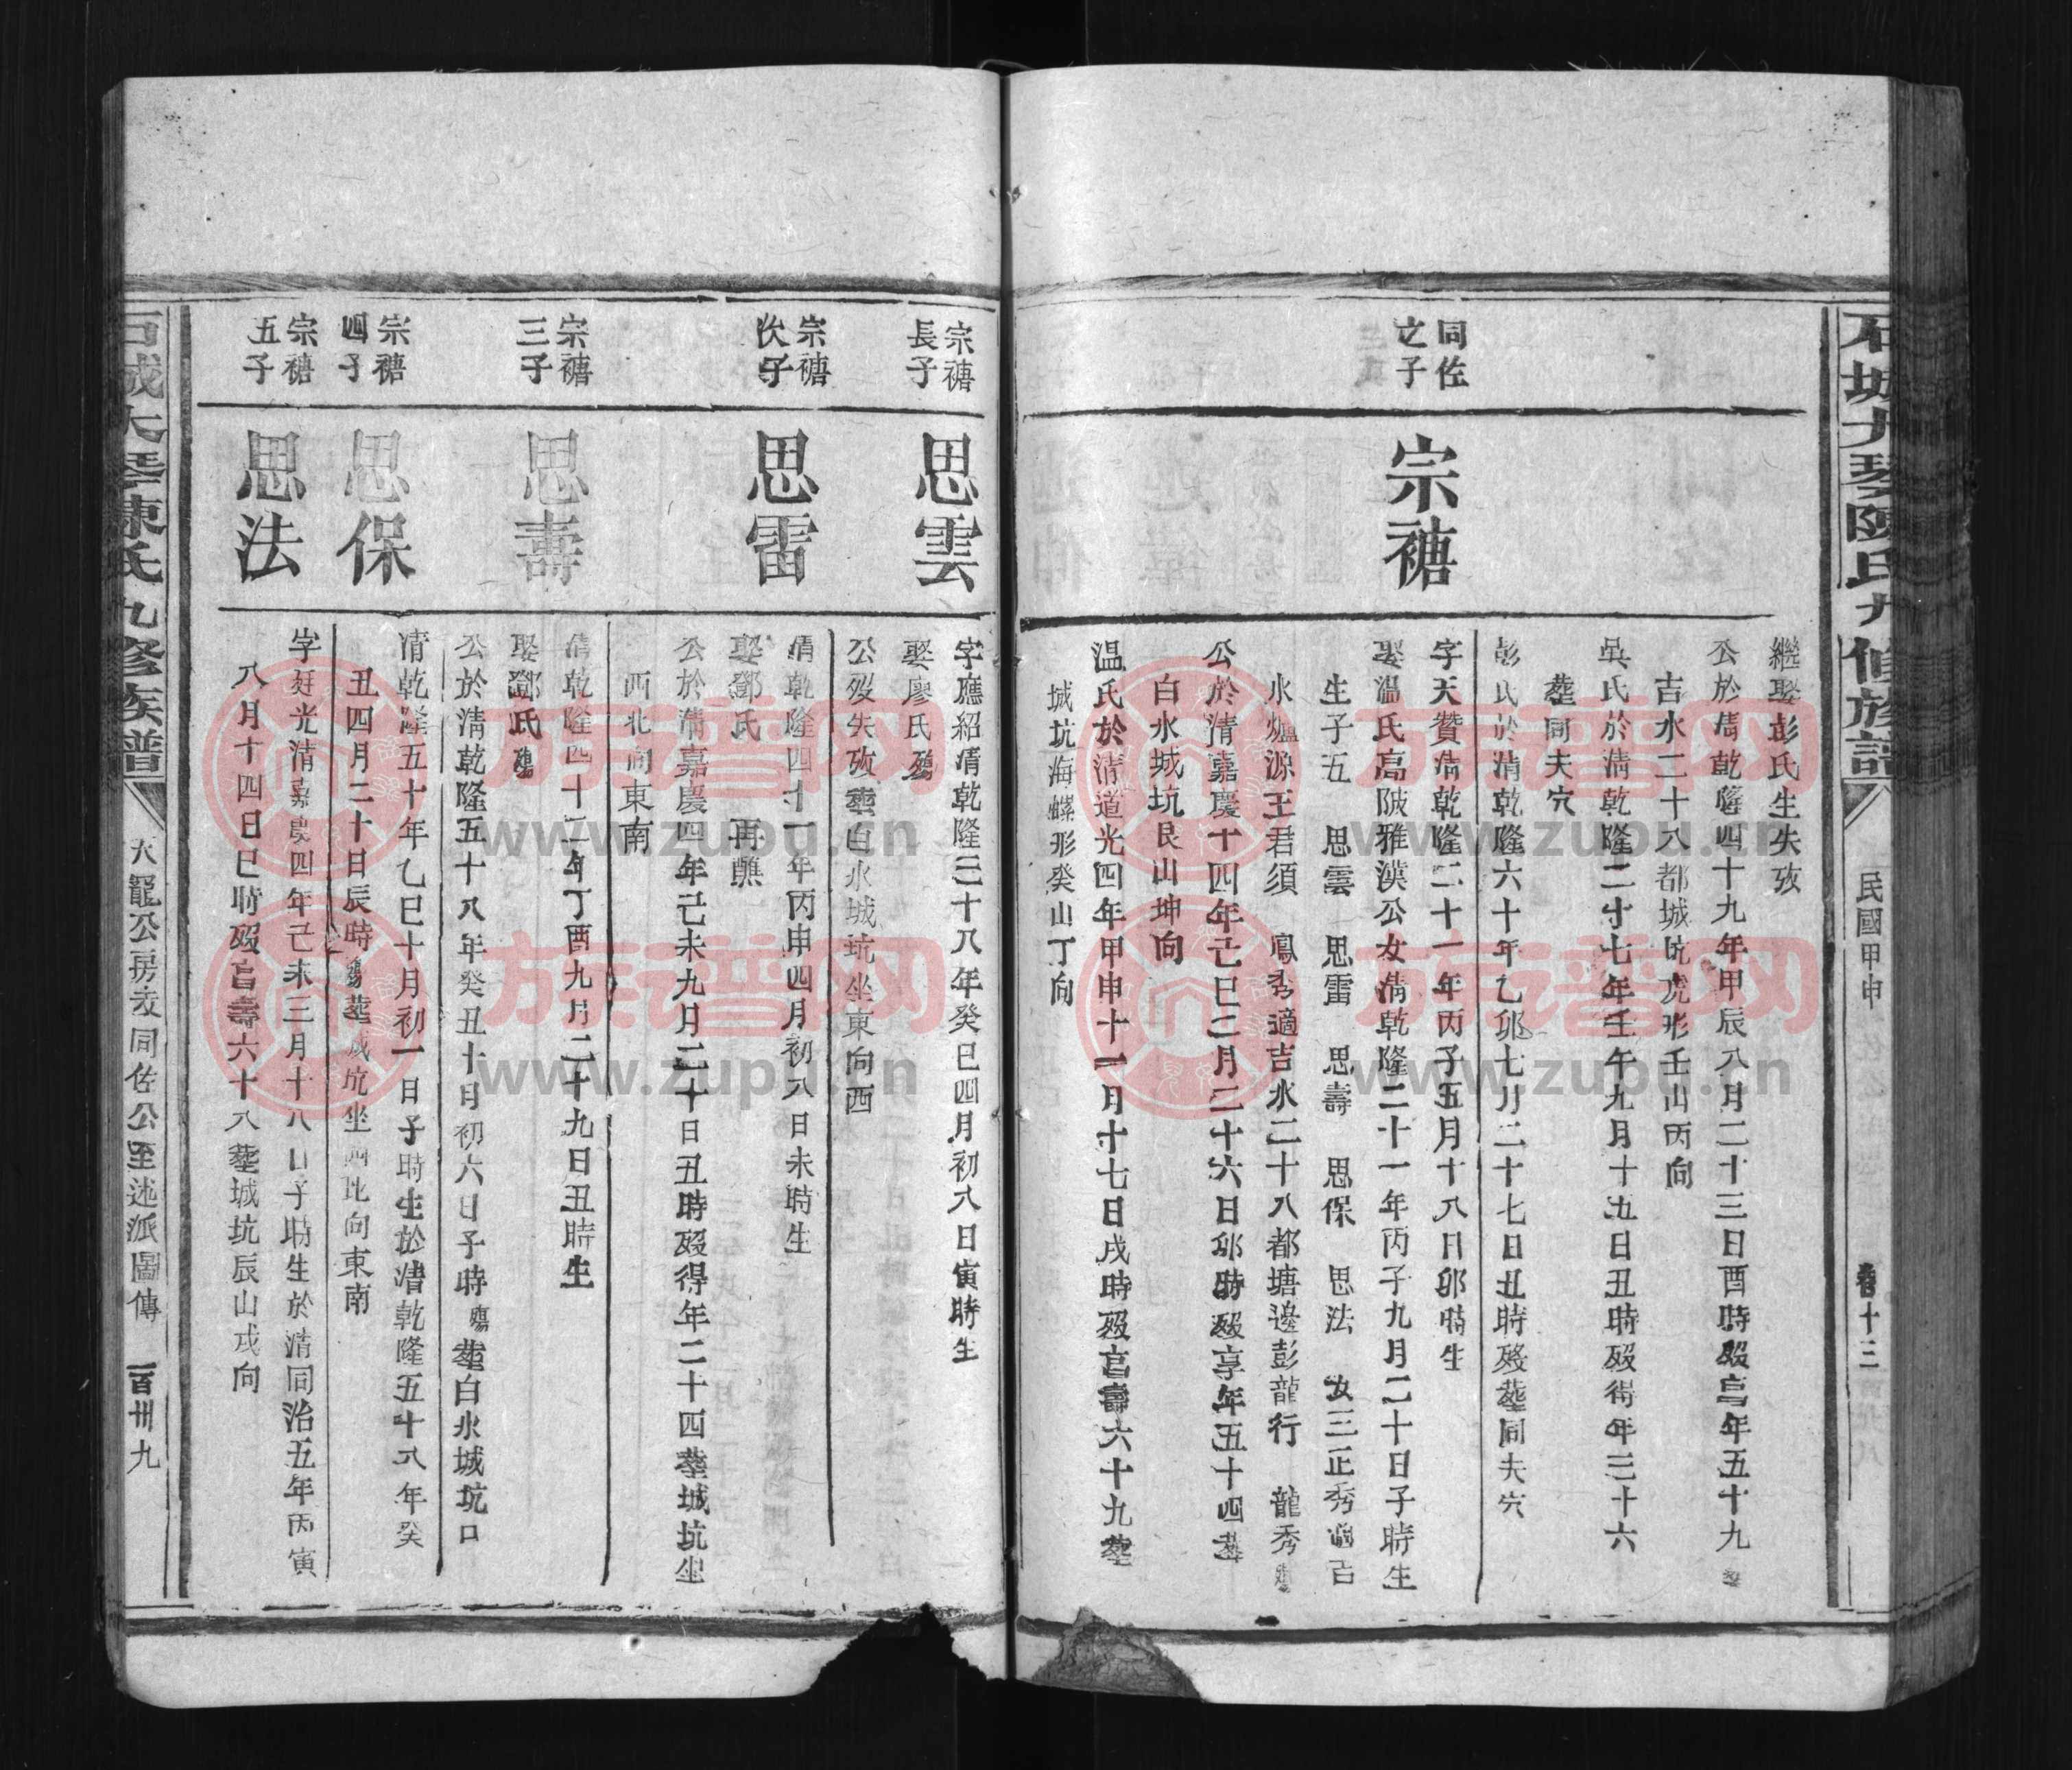 石城大琴陳氏九修族譜
民國甲申
卷十三
繼娶彭氏生失攷
公於清乾隆四十九年甲辰八月二十三日酉時歿享年五十九葬
吉水二十八都城坑虎形壬山丙向
吳氏於清乾隆二十七年壬午九月十五日丑時歿得年三十六
葬同夫穴
彭氏於清乾隆六十年乙卯七月二十七日丑時歿葬同夫穴
同佐
之子
宗禟
字天贊清乾隆二十一年丙子五月十八日卯時生
娶溫氏高陂雅漢公女清乾隆二十一年丙子九月二十日子時生
生子五 思雲 思雷 思壽 思保 思法 女三正秀適吉
水爐源王君須 鳳秀適吉水二十八都塘邊彭龍行 龍秀殤
公於清嘉慶十四年己巳三月二十六日卯時歿享年五十四葬
白水城坑艮山坤向
溫氏於清道光四年甲申十一月十七日戌時歿享壽六十九葬
城坑海螺形癸山丁向
宗禟
長子
思雲
字應紹清乾隆三十八年癸巳四月初八日寅時生
娶廖氏殤
公歿失攷葬白水城坑坐東向西
宗禟
次子
思雷
清乾隆四十一年丙申四月初八日未時生
娶鄧氏 再醮
公於清嘉慶四年己未九月二十日丑時歿得年二十四葬城坑坐
西北向東南
宗禟
三子
思壽
清乾隆四十二年丁酉九月二十九日丑時生
娶鄧氏殤
公於清乾隆五十八年癸丑十月初六日子時殤葬白水城坑口
宗禟
四子
思保
清乾隆五十年乙巳十月初一日子時生於清乾隆五十八年癸
丑四月二十日辰時殤葬城坑坐西北向東南
宗禟
五子
思法
字廷光清嘉慶四年己未三月十八日子時生於清同治五年丙寅
八月十四日巳時歿享壽六十八葬城坑辰山戌向
石城大琴陳氏九修族譜
天寵公房友同佐公至述派圖傳
一百卅九